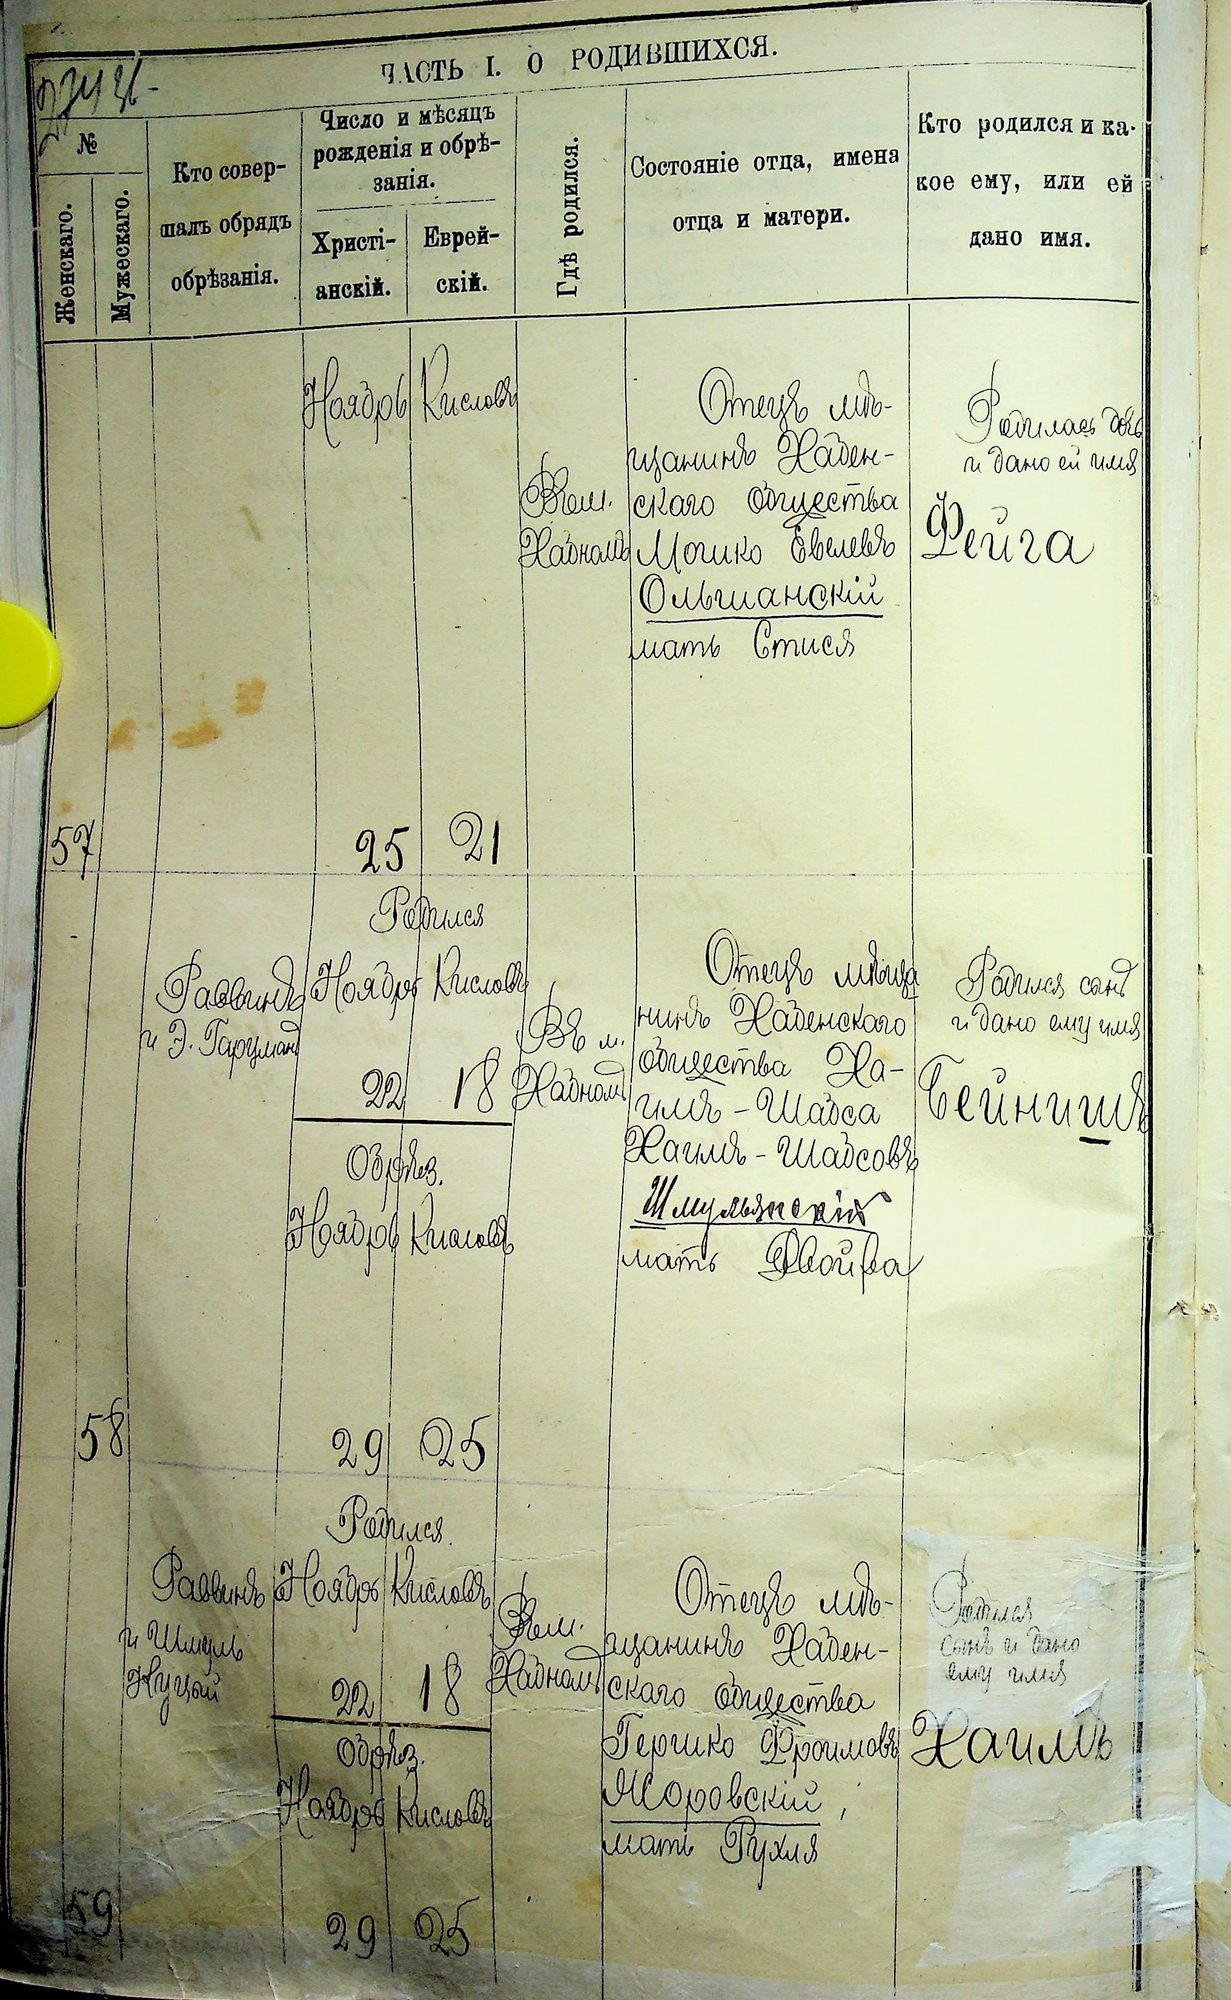 ЧАСТЬ I. О РОДИВШИХСЯ.
№
Женскаго.
Мужескаго.
Кто совер-
шалъ обрядъ
обрѣзанія.
Число и мѣсяцъ
рожденія и обрѣ-
занія.
Христі-
анскій.
Еврей-
скій.
Гдѣ родился.
Состояніе отца, имена
отца и матери.
Кто родился и ка-
кое ему, или ей
дано имя.
57
Ноябрь
25
Кисловъ
21
Въ м.
Хабномъ
Отецъ мѣ-
щанинъ Хабен-
скаго общества
Мошко Евелевъ
Ольшанскій
мать Стися
Родилась дочь
и дано ей имя
Фейга
58
Раввинъ
и Э.
Родился
Ноябрь Кисловъ
22 18
Обрѣз.
Ноябрь Кисловъ
29 25
Въ м.
Хабномъ
Отецъ мѣща
нинъ Хабенскаго
общества Ха-
имъ-Шабса
Хаимъ-Шабсовъ
Шмульянскій
мать Двойра
Родился сынъ
и дано ему имя
Бейнишъ
59
Раввинъ
и Шмуль
Родился
Ноябрь Кисловъ
22 18
Обрѣз.
Ноябрь Кисловъ
29 25
Въ м.
Хабномъ
Отецъ мѣ-
щанинъ Хабен-
скаго общества
Гершко Фроимовъ
Жоровскій,
мать Рухля
Родился
сынъ и дано
ему имя
Хаимъ